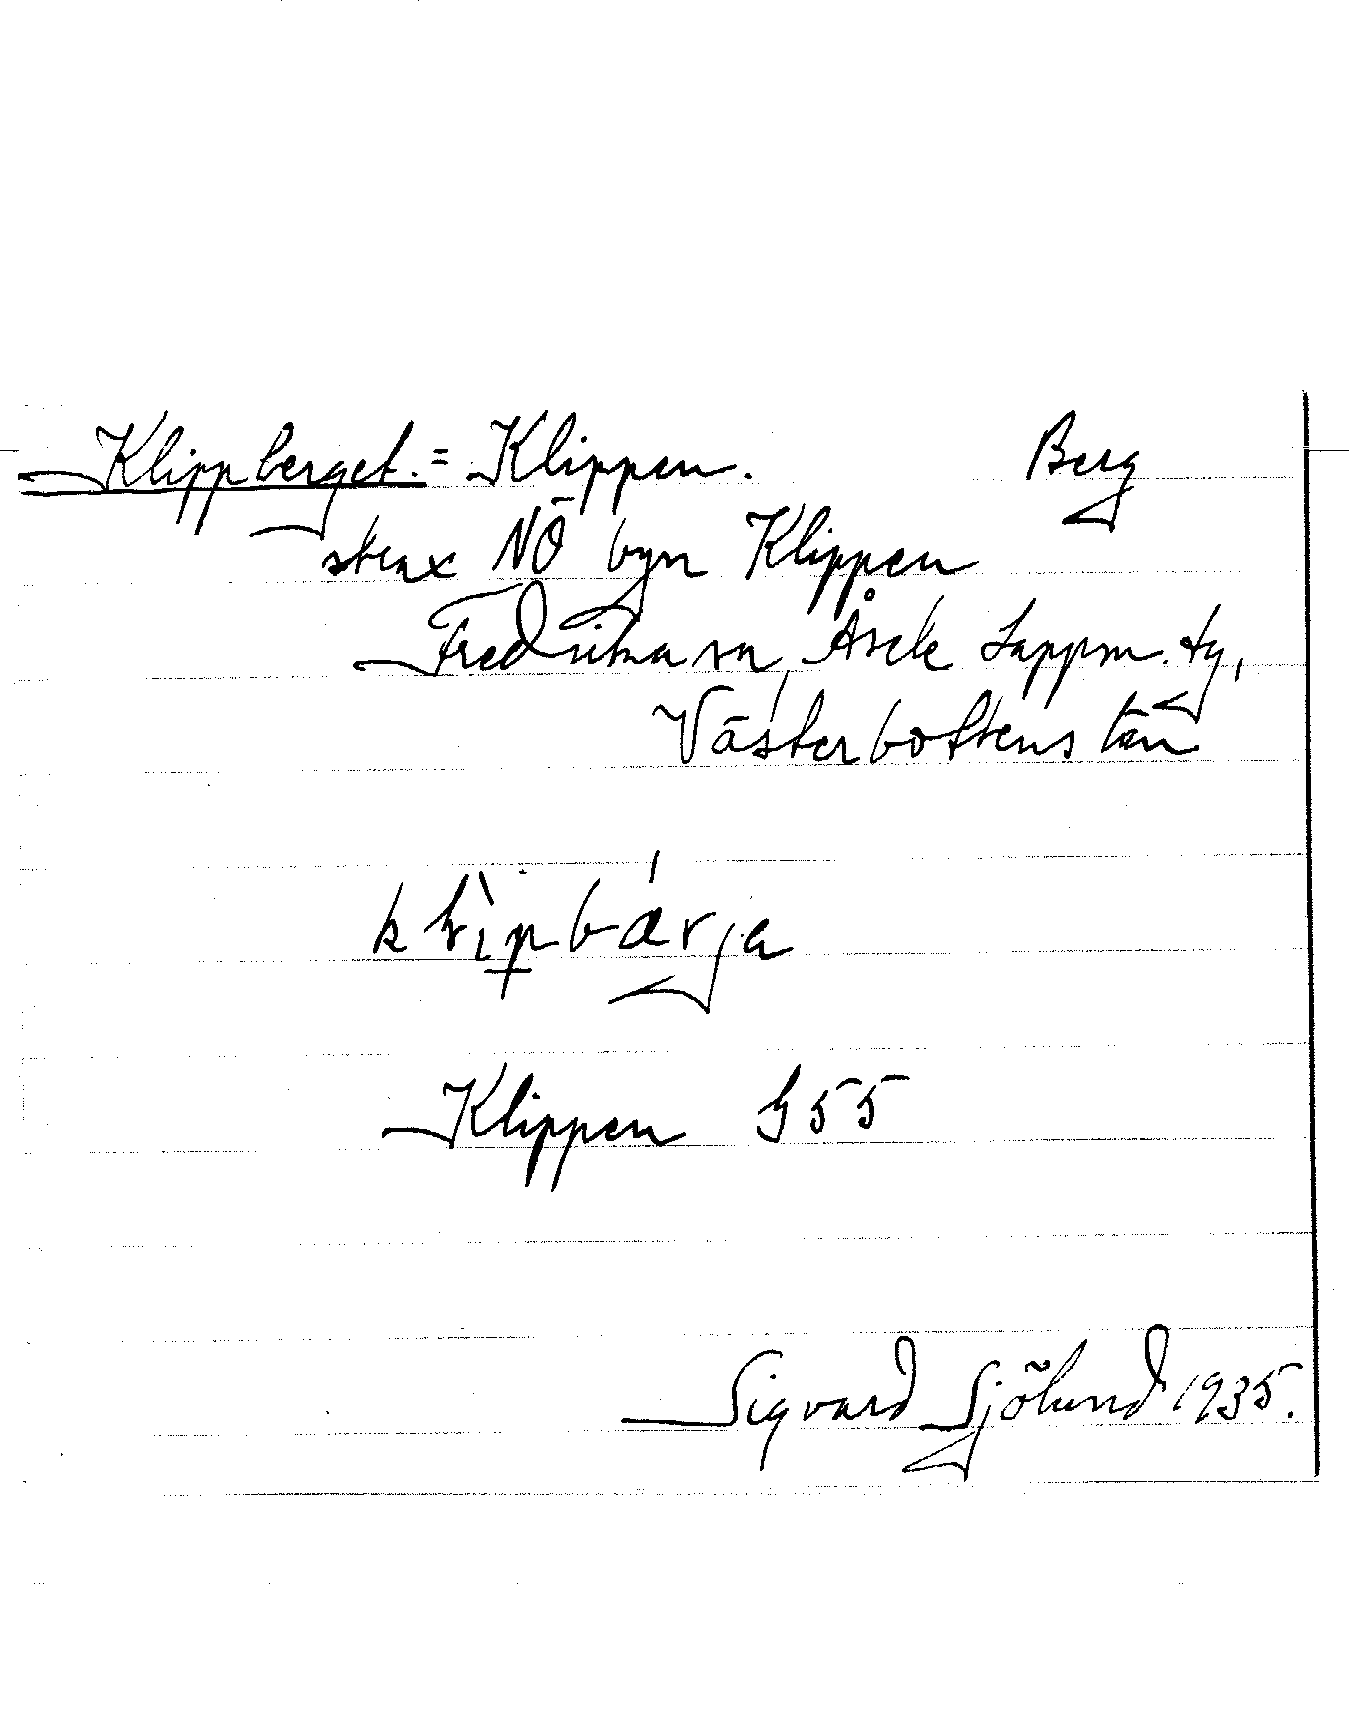 Klippberget. = Klippen. Berg
strax NÖ byn Klippen
Fredrika sn, Åsele Lappm. tg,
Västerbottens län
Klippen G55
Sigvard Sjölund 1935.